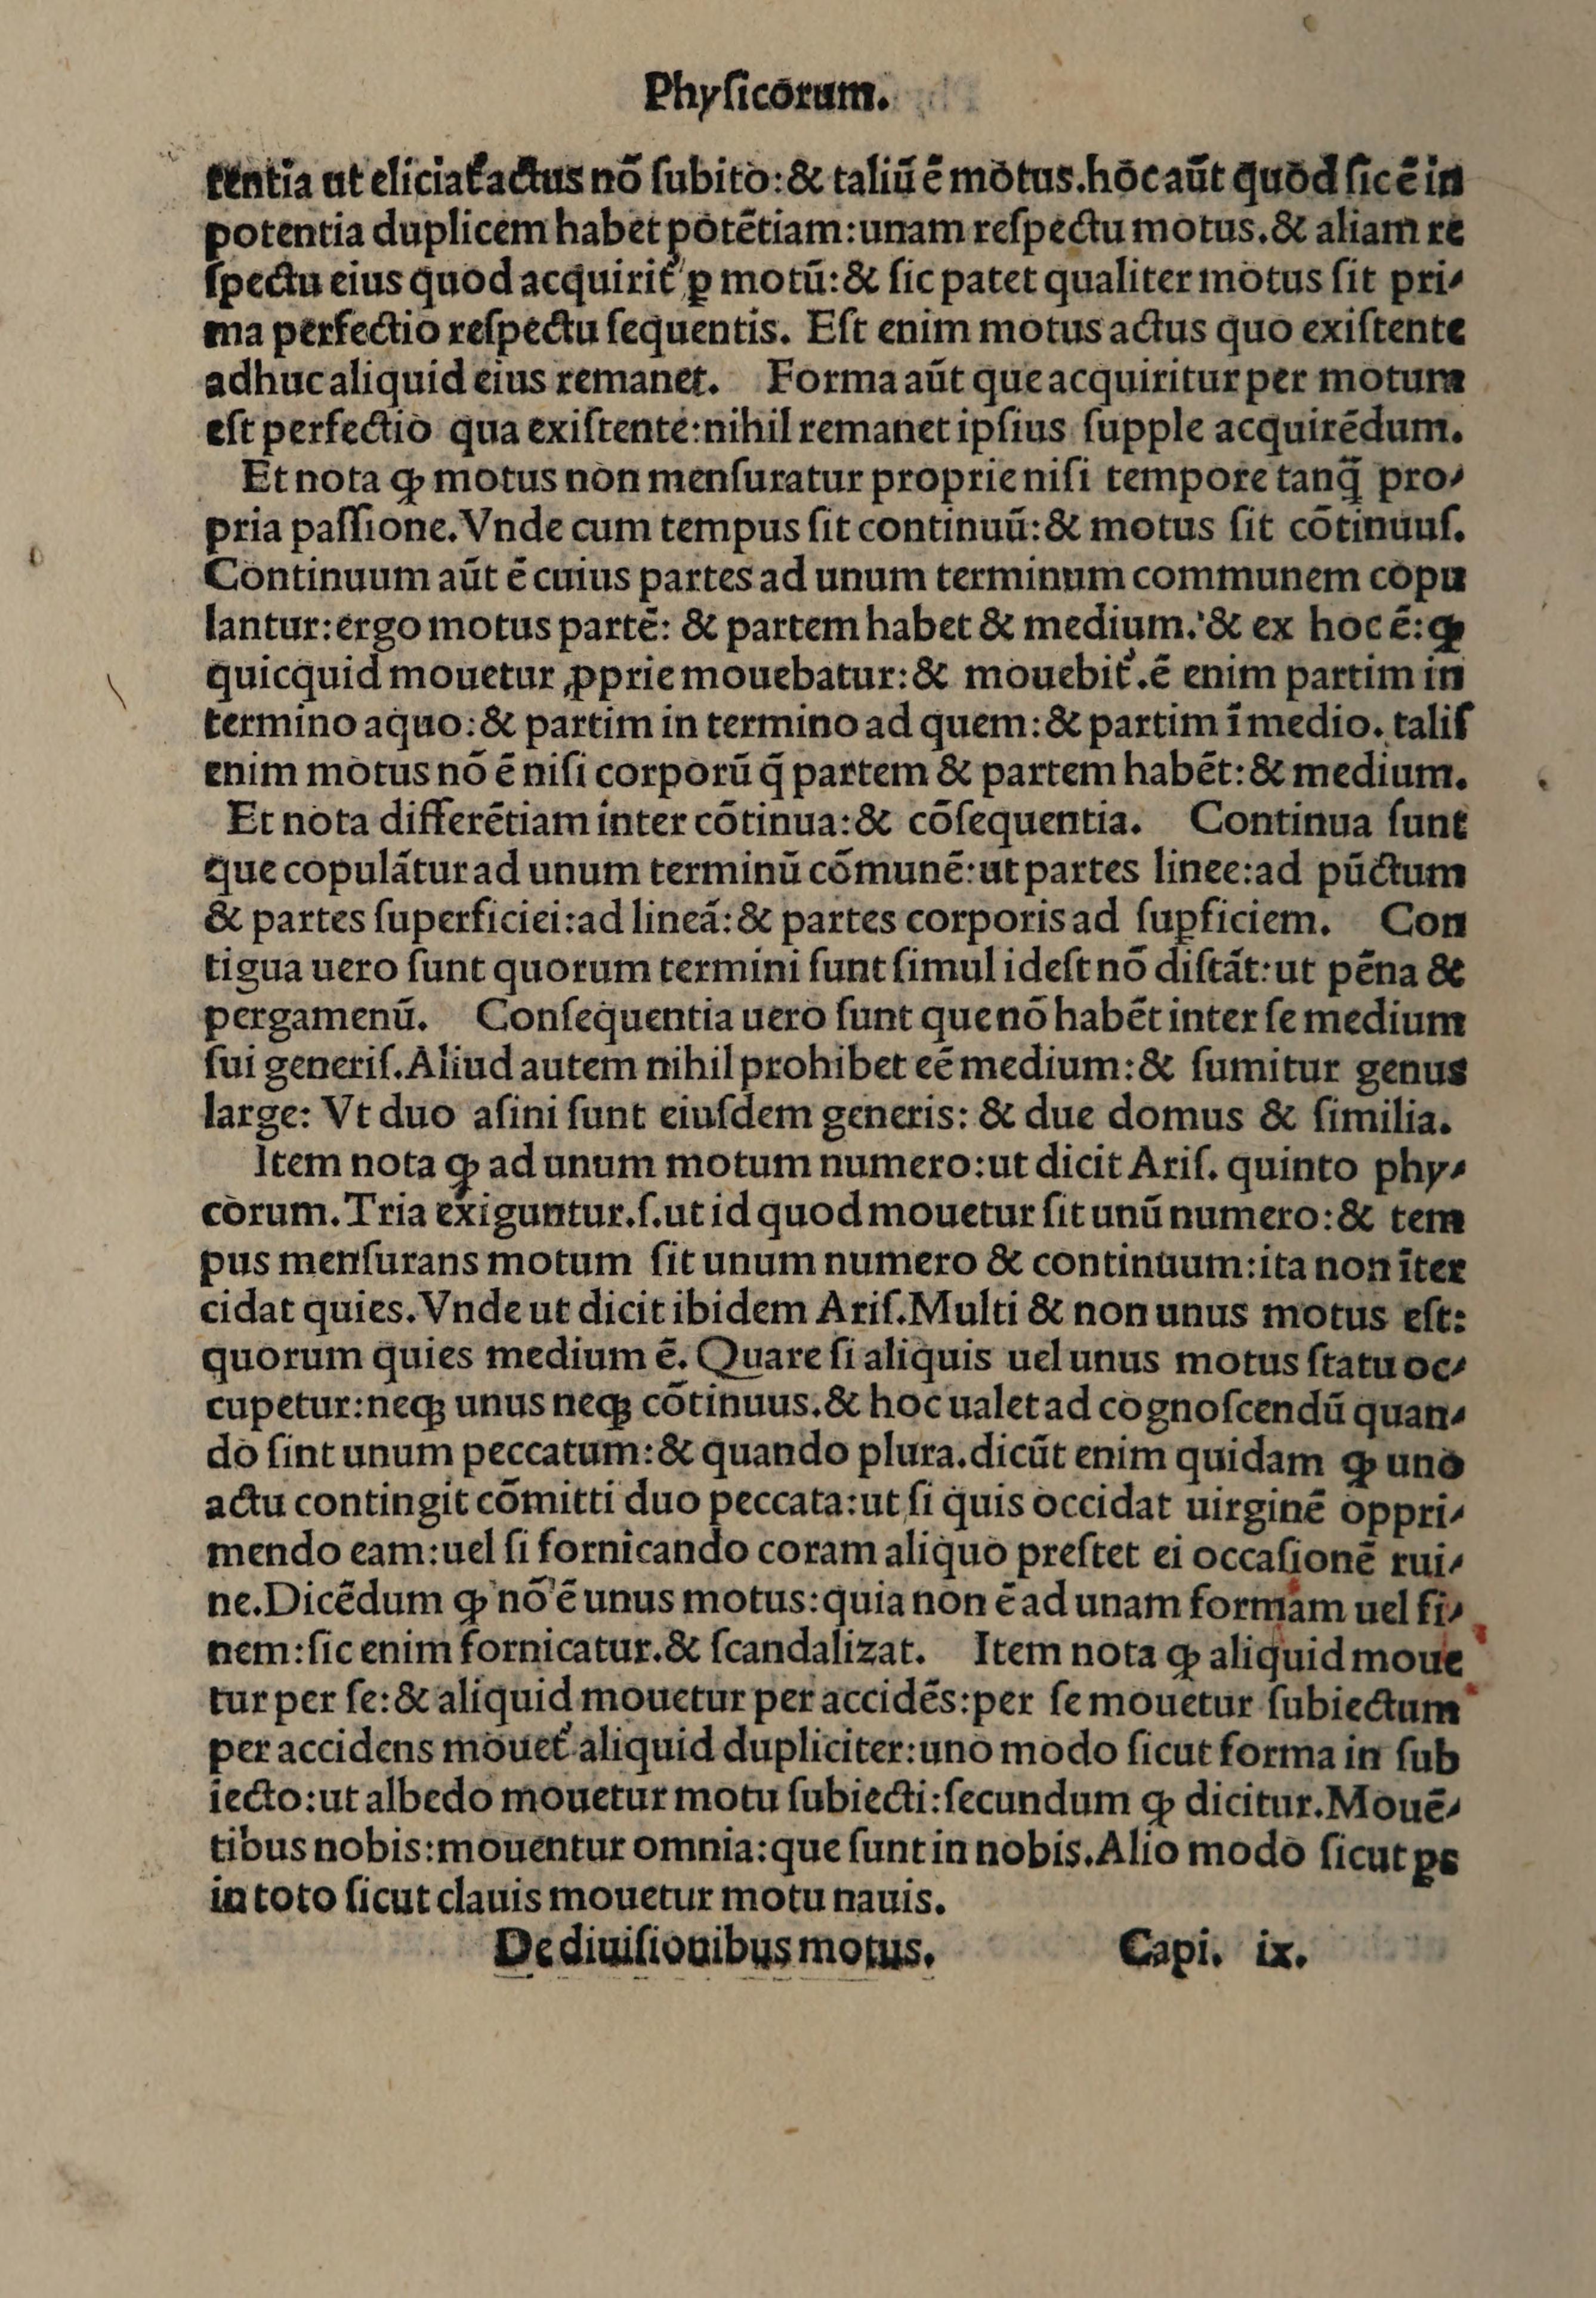 Phyſicorum.
tentia ut eliciat᷑ actus nō ſubito:& taliū ē motus.hoc aūt quod ſic ē in
potentia duplicem habet potētiam:unam reſpectu motus.& aliam re
ſpectu eius quod acquirit᷑ ꝑ motū:& ſic patet qualiter motus ſit pri⸗
ma perfectio reſpectu ſequentis. Eſt enim motus actus quo exiſtente
adhuc aliquid eius remanet. Forma aūt que acquiritur per motum
eſt perfectio qua exiſtente:nihil remanet ipſius ſupple acquirēdum.
Et nota ꝙ motus non menſuratur proprie niſi tempore tanq̄ pro⸗
pria paſſione.Vnde cum tempus ſit continuū:& motus ſit cōtinuuſ.
Continuum aūt ē cuius partes ad unum terminum communem copu
lantur:ergo motus partē: & partem habet & medium.& ex hoc ē:ꝙ
quicquid mouetur ꝓprie mouebatur:& mouebit᷑.ē enim partim in
termino aquo:& partim in termino ad quem:& partim ī medio. taliſ
enim motus nō ē niſi corporū q̄ partem & partem habēt:& medium.
Et nota differētiam inter cōtinua:& cōſequentia. Continua ſunt
que copulātur ad unum terminū cōmunē:ut partes linee:ad pūctum
& partes ſuperficiei:ad lineā:& partes corporis ad ſuꝑficiem. Con
tigua uero ſunt quorum termini ſunt ſimul ideſt nō diſtāt:ut pēna &
pergamenū. Conſequentia uero ſunt que nō habēt inter ſe medium
ſui generiſ.Aliud autem nihil prohibet eē medium:& ſumitur genus
large: Vt duo aſini ſunt eiuſdem generis: & due domus & ſimilia.
Item nota ꝙ ad unum motum numero:ut dicit Ariſ. quinto phy⸗
corum.Tria exiguntur.ſ.ut id quod mouetur ſit unū numero:& tem
pus menſurans motum ſit unum numero & continuum:ita non īter
cidat quies.Vnde ut dicit ibidem Ariſ.Multi & non unus motus eſt:
quorum quies medium ē. Quare ſi aliquis uel unus motus ſtatu oc⸗
cupetur:neqꝫ unus neqꝫ cōtinuus.& hoc ualet ad cognoſcendū quan⸗
do ſint unum peccatum:& quando plura.dicūt enim quidam ꝙ uno
actu contingit cōmitti duo peccata:ut ſi quis occidat uirginē oppri⸗
mendo eam:uel ſi fornicando coram aliquo preſtet ei occaſionē rui⸗
ne.Dicēdum ꝙ nō ē unus motus:quia non ē ad unam formam uel fi⸗
nem:ſic enim fornicatur.& ſcandalizat. Item nota ꝙ aliquid moue
tur per ſe:& aliquid mouetur per accidēs:per ſe mouetur ſubiectum
per accidens mouet᷑ aliquid dupliciter:uno modo ſicut forma in ſub
iecto:ut albedo mouetur motu ſubiecti:ſecundum ꝙ dicitur.Mouē⸗
tibus nobis:mouentur omnia:que ſunt in nobis.Alio modo ſicut ꝑs
in toto ſicut clauis mouetur motu nauis.
De diuiſionibus motus. Capi. ix.